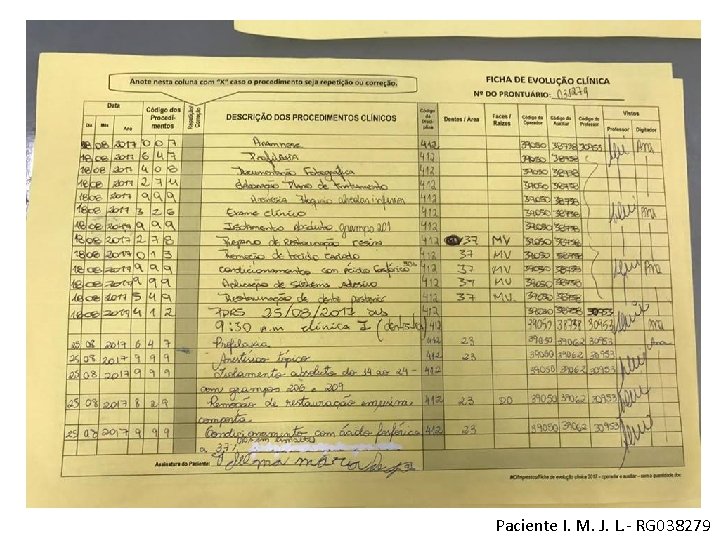 Anote nesta coluna com "X" caso o procedimento seja repetição ou correção.
FICHA DE EVOLUÇÃO CLÍNICA
Nº DO PRONTUÁRIO:
Data Código dos Procedimentos Repetição Correção DESCRIÇÃO DOS PROCEDIMENTOS CLÍNICOS Código da Disciplina Dentes / Área Faces / Raízes Código do Operador Código do Auxiliar Código do Professor Vistos
Dia Mês Ano Professor Digitador
18 08 2017 007 Anamnese 412 39050 38738 30953
18 08 2017 647 Profilaxia 412 39050 38738
18 08 2017 408 Documentação Fotográfica 412 39050 38738
18 08 2017 274 elaboração Plano de tratamento 412 39050 38738
18 08 2017 999 Anestesia Bloqueio alveolar inferior 412 39050 38738
18 08 2017 326 Exame clínico 412 39050 38738
18 08 2017 999 Isolamento absoluto grampo 201 412 39050 38738
18 08 2017 278 Preparo de Restauração resina 412 37 MV 39050 38738
18 08 2017 013 Remoção de tecido cariado 412 37 MV 39050 38738
18 08 2017 999 condicionamento com ácido fosfórico 412 37 MV 39050 38738
18 08 2017 999 Aplicação de sistema adesivo 412 37 MV 39050 38738
18 08 2017 549 Restauração de dente posterior 412 37 MV 39050 38738
18 08 2017 412 25/08/2017 às 412 39050 38738 30953
9:30 clínica I 412 39050 38738 30953
25 08 2017 647 Profilaxia 412 39050 39062 30953
25 08 2017 999 Anestésico tópico 412 23 39050 39062 30953
25 08 2017 999 Isolamento absoluto do 14 ao 24 - 412 39050 39062 30953
com grampos 206 e 209
25 08 2017 Remoção de restauração em resina 412 23 39050 39062 30953
composta
25 08 2017 999 Condicionamento com ácido fosfórico 412 23 39050 39062 30953
a 37%
Assinatura do Paciente:
Paciente I. M. J. L.- RG038279